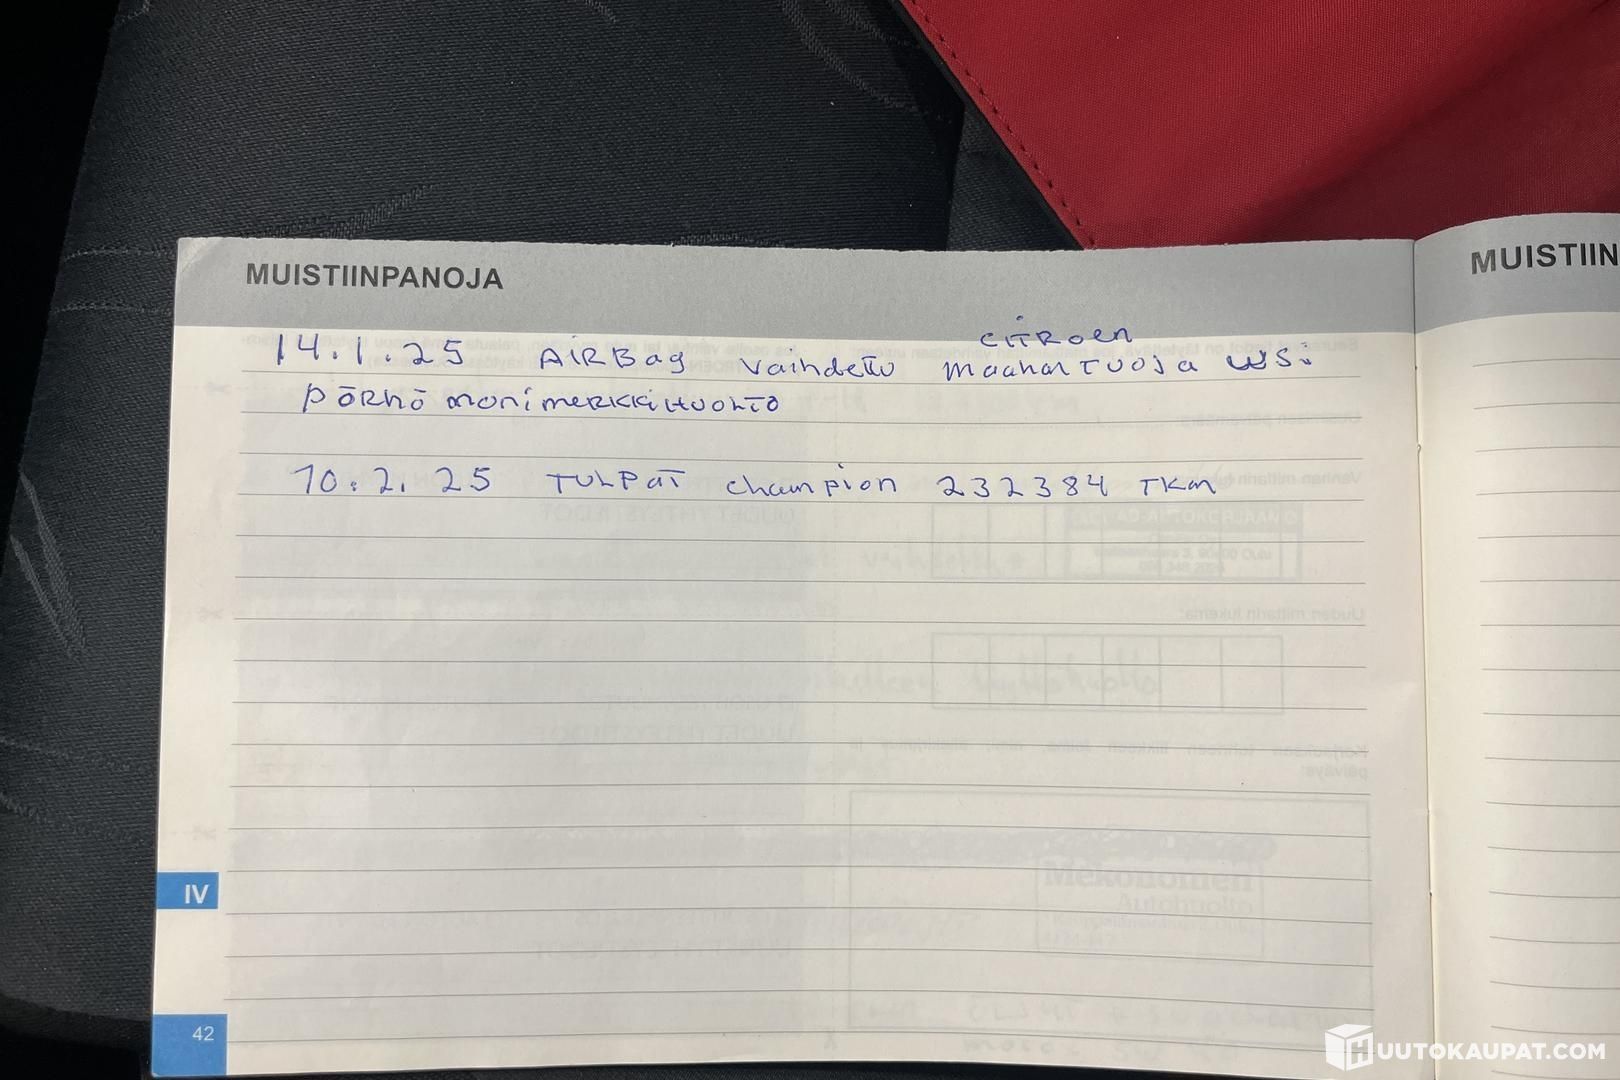 MUISTIINPANOJA
MUISTIIN
CITROEN
14.1.25 AIRBag vaihdettu maahanTUOJA
pörhö monimerkkihuolto
10.2.25 TULPAT champion 232384 TKM
Mekonomen
Autohuolto
IV
42
HUUTOKAUPAT.COM